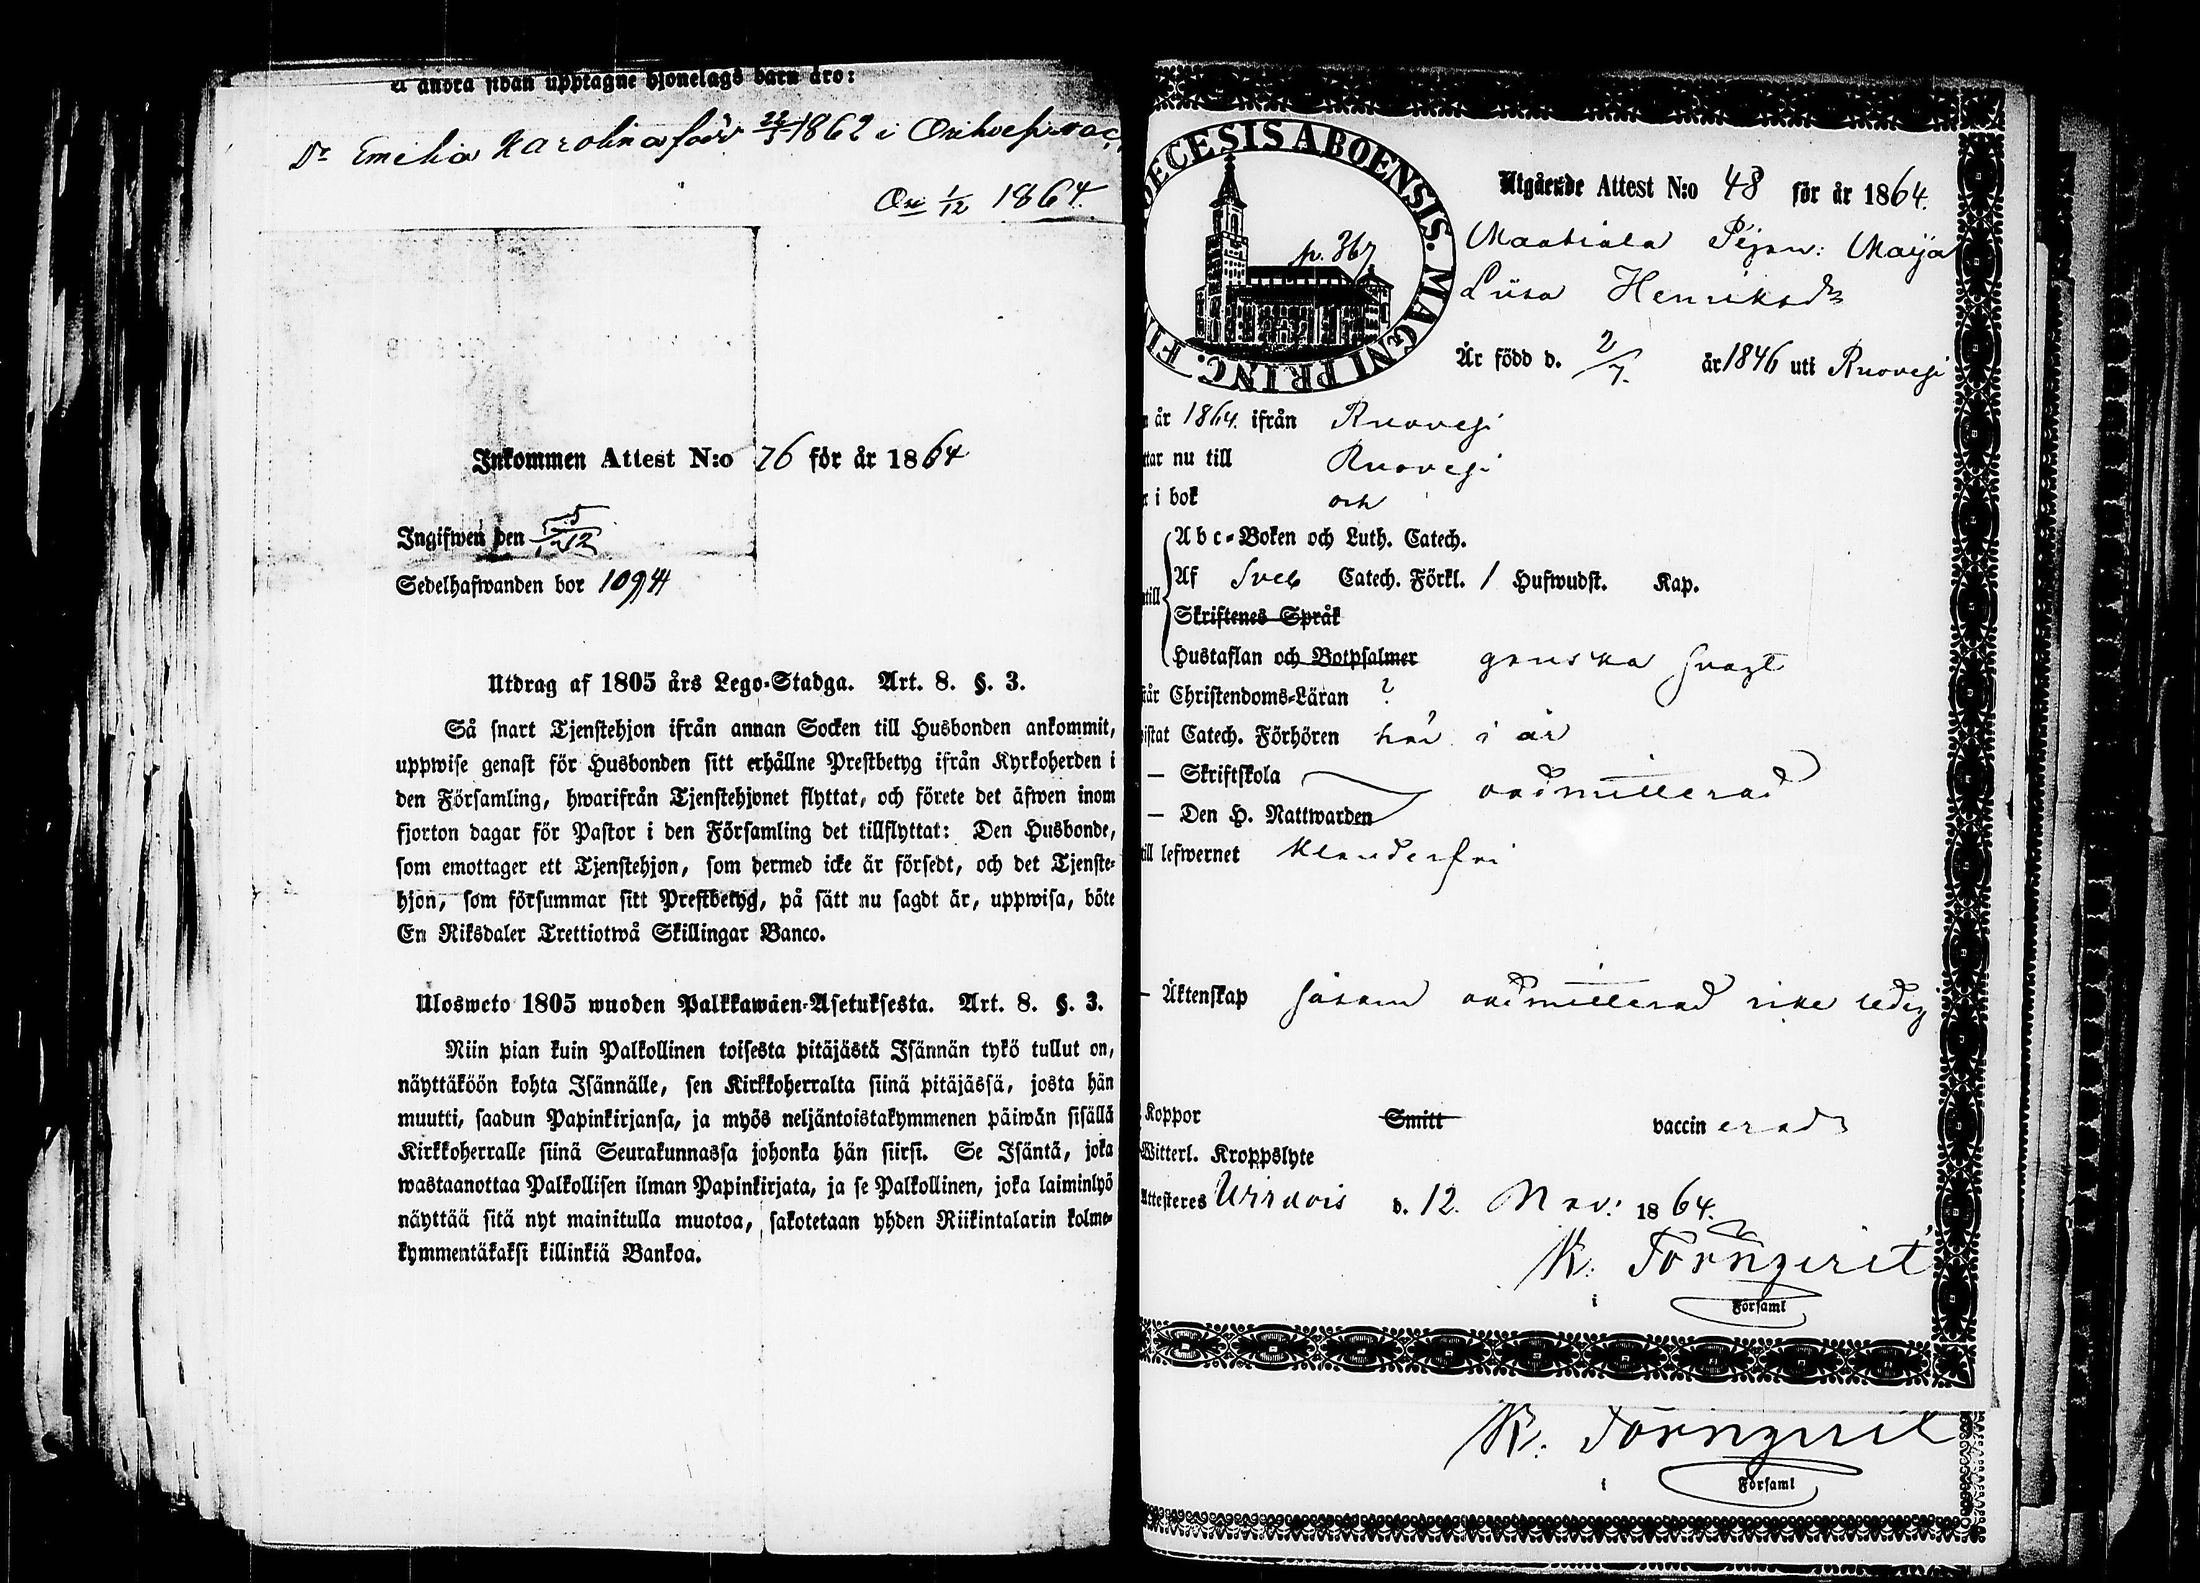 å andra sidan upptagne hjonelags barn äro:
Dr Emelia Karolina född 22/3 1862 i
On 1/12 1864.
Inkommen Attest N:o 76 för år 1864
Ingifwen den 5/12
Sedelhafwanden bor 1094
Utdrag af 1805 års Lego-Stadga. Art. 8. §. 3.
Så snart Tjenstehjon ifrån annan Socken till Husbonden ankommit,
uppwise genast för Husbonden sitt erhållne Prestbetyg ifrån Kyrkoherden i
den Församling, hwarifrån Tjenstehjonet flyttat, och förete det äfwen inom
fjorton dagar för Pastor i den Församling det tillflyttat: Den Husbonde,
som emottager ett Tjenstehjon, som dermed icke är försedt, och det Tjenste-
hjon, som försummar sitt Prestbetyg, på sätt nu sagdt är, uppwisa, böte
En Riksdaler Trettiotwå Skillingar Banco.
Ulosweto 1805 wuoden Palkkawäen-Asetuksesta. Art. 8. §. 3.
Niin pian kuin Palkollinen toisesta pitäjästä Isännän tykö tullut on,
näyttäköön kohta Isännälle, sen Kirkkoherralta siinä pitäjässä, josta hän
muutti, saadun Papinkirjansa, ja myös neljäntoistakymmenen päiwän sisällä
Kirkkoherralle siinä Seurakunnassa johonka hän siirsi. Se Isäntä, joka
wastaanottaa Palkollisen ilman Papinkirjata, ja se Palkollinen, joka laiminlyö
näyttää sitä nyt mainitulla muotoa, sakotetaan yhden Riikintalarin kolme-
kymmentäkaksi killinkiä Bankoa.
DECESIS ABOENSIS. MAGNI PRINC. FI
p. 367
Utgående Attest N:o 48 för år 1864.
Maatiala Pigan: Maija
Liisa Henriksdr
Är född d. 2/7. år 1846 uti Ruovesi
år 1864. ifrån Ruovesi
tar nu till Ruovesi
i bok och
Abc-Boken och Luth. Catech.
Af Sveb Catech. Förkl. 1 Hufwudst. Kap.
till
Skriftenes Språk
Hustaflan och Botpsalmer ganska svagt
tår Christendoms-Läran ?
istat Catech. Förhören här i år
— Skriftskola
admitterad
— Den H. Nattwarden
till lefwernet klanderfri
— Äktenskap såsom admitterad icke ledig
Koppor Smitt vaccinerad
Witterl. Kroppslyte
Attesteres Wirdois d. 12. Nov: 1864.
K. Törnqvist
i Församl
K. Törnqvist
i Församl